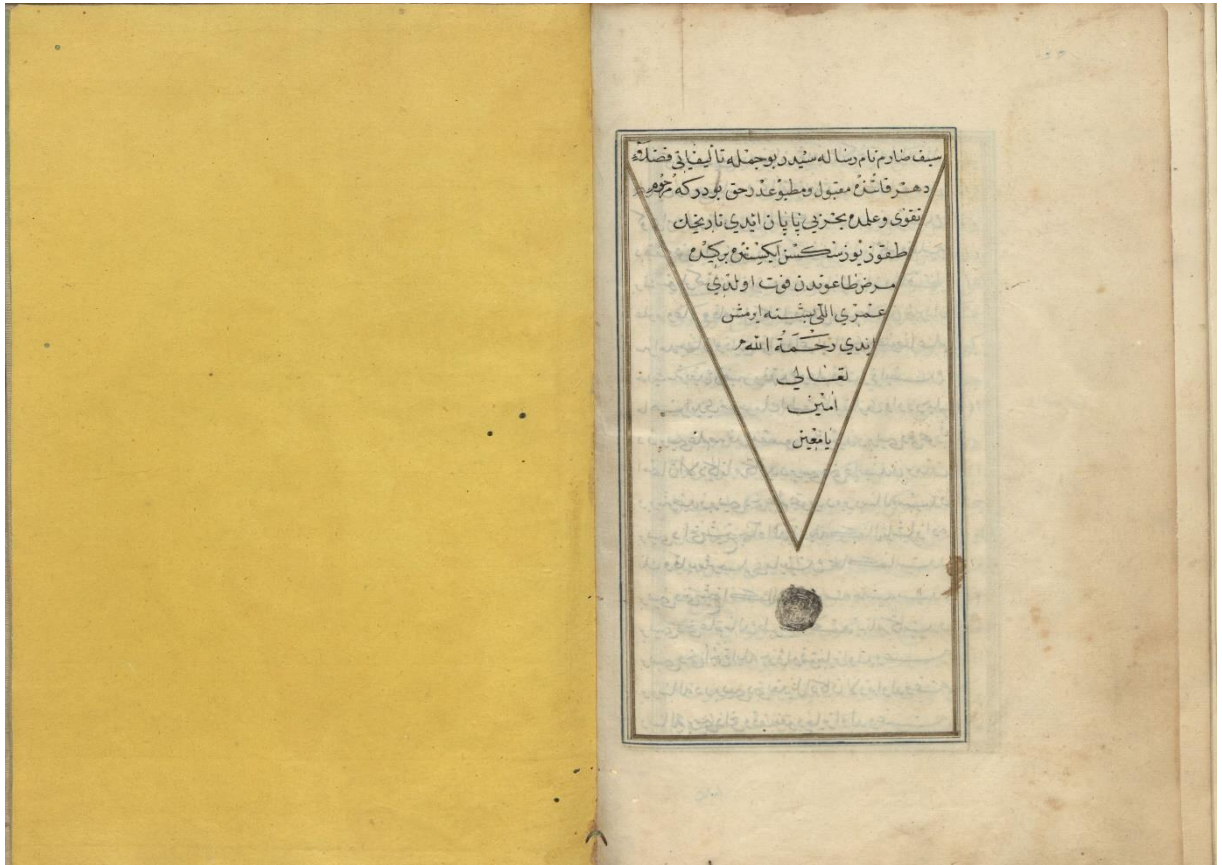 سيف صارم نام رساله سيدر بو جمله تأليفاتى فضلاء
دهر قاتنده مقبول و مطبوعدر حق بودر كه مرحوم
تقوى و علمده بحر بى پايان ايدي تاريخك
طقوز يوز سكسن ايكسنده بركيده
مرض طاعوندن فوت اولدي
عمري اللى بشنه ايرمش
ايدي رحمة الله
تعالى
امين
يا معين